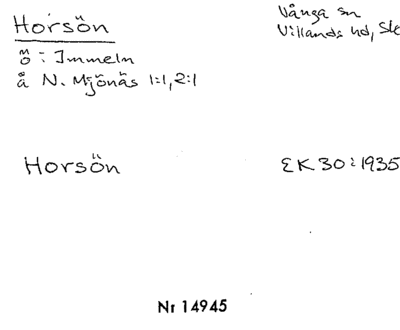 Horsön
Vånga sn
Villands hd, Sk
ö i Immeln
å N. Mjönäs 1:1, 2:1
Horsön
EK 30:1935
Nr 14945